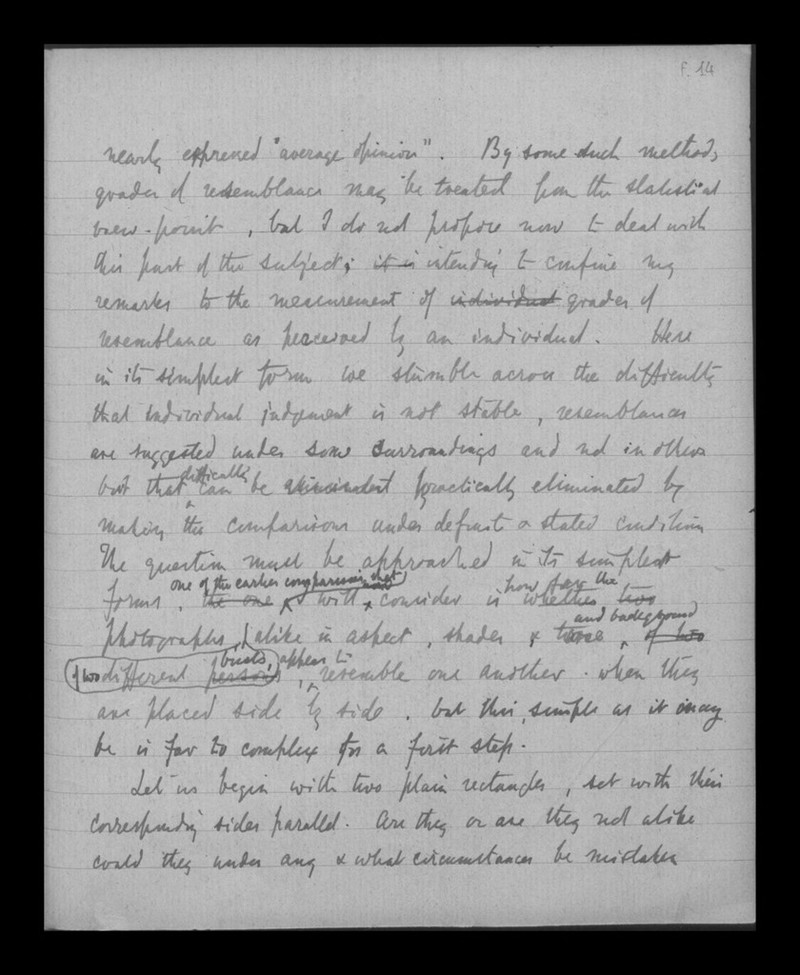 F. 14
nearly expressed "average opinion". By some such methods
grades of resemblance may be treated from the statistical
view-point, but I do not propose now to deal with
this part of the subject; it is intending to confine my
remarks to the measurement of individual grades of
resemblance as perceived by an individual. Here
in its simplest form we stumble across the difficulty
that individual judgement is not stable, resemblances
are suggested under some surroundings and not in others
difficulty
but that can be practically eliminated by
making the comparisons under definite & stated conditions
The question must be approached in its simplest
one of the earlier comparisons that how far the
forms, the one I will consider is whether two
and background
photographs, alike in aspect, shades & tone, of two
busts, appear to
of two different persons, resemble one another when they
are placed side by side, but this, simple as it may
be is far to complex for a first step.
Let us begin with two plain rectangles, set with their
corresponding sides parallel. Are they or are they not alike
could they under any & what circumstances be mistaken